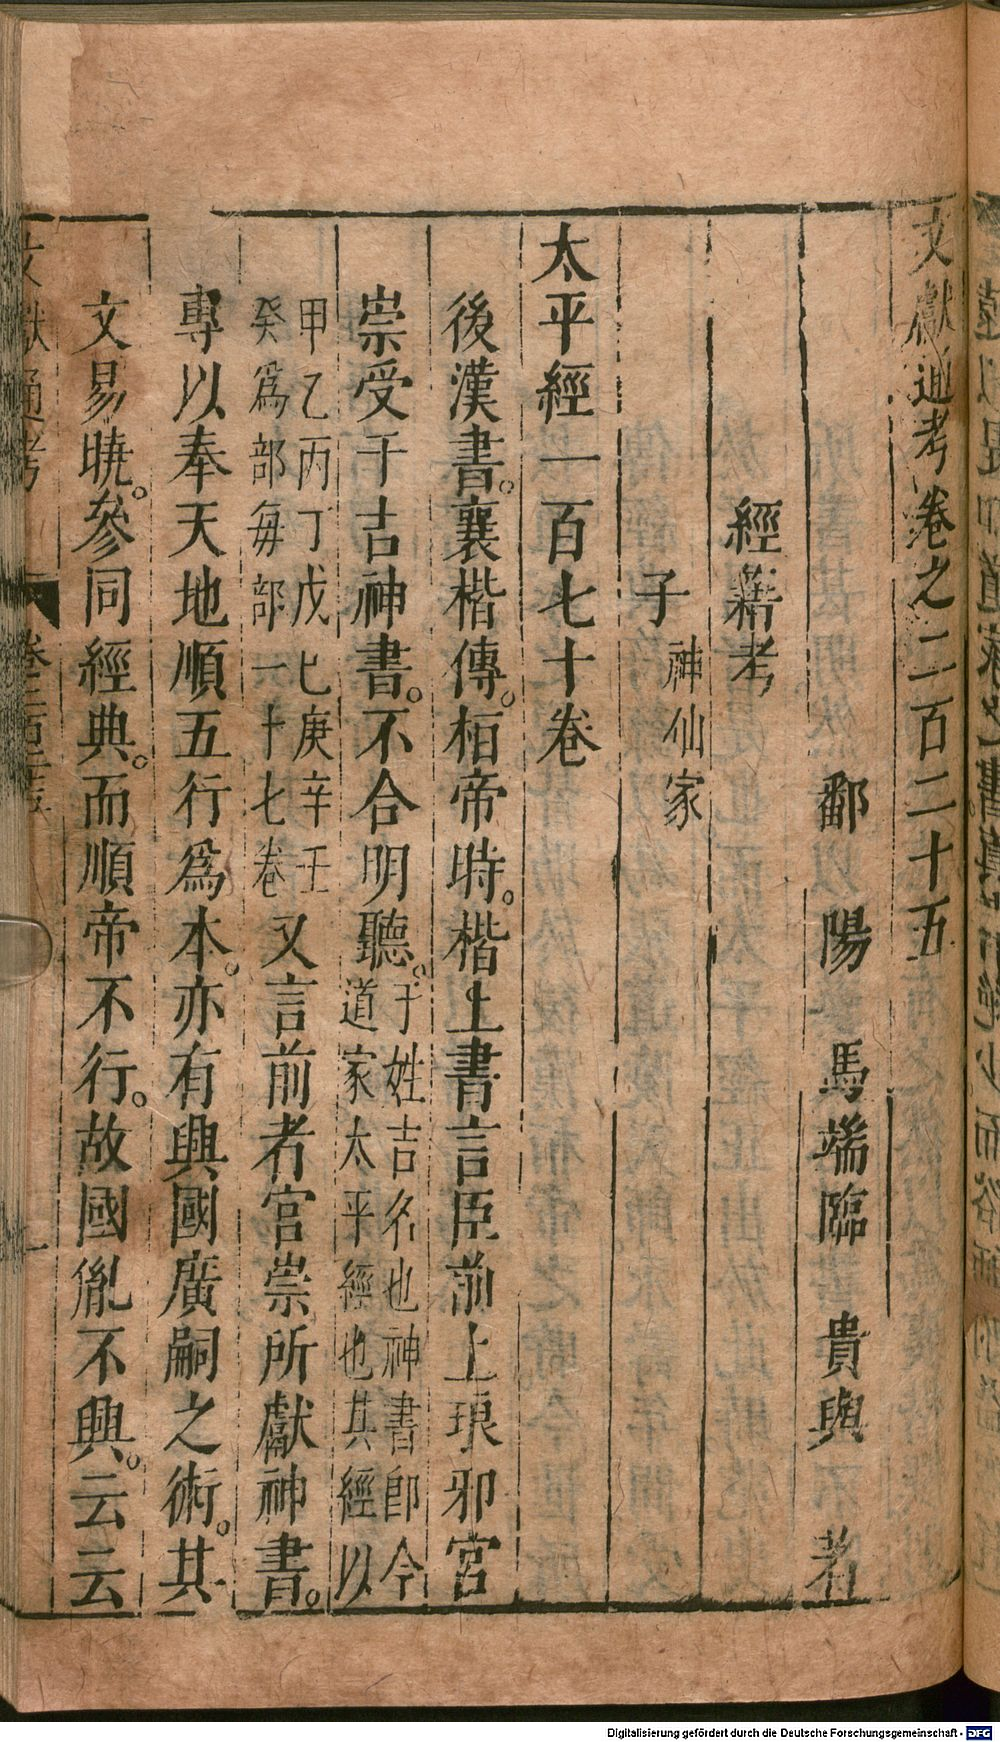 文獻通考卷之二百二十五
鄱陽馬端臨貴與著
經籍考
子神仙家
太平經一百七十卷
後漢書。襄楷傳。桓帝時。楷上書言臣前上琅邪宮
崇受于吉神書。不合明聽。于姓吉名也神書即今
道家太平經也其經以
甲乙丙丁戊己庚辛壬
癸爲部每部一十七卷又言前者宮崇所獻神書。
專以奉天地順五行爲本。亦有興國廣嗣之術。其
文易曉。參同經典。而順帝不行。故國胤不興。云云
文獻通考
卷二百二十五
一
Digitalisierung gefördert durch die Deutsche Forschungsgemeinschaft - DFG